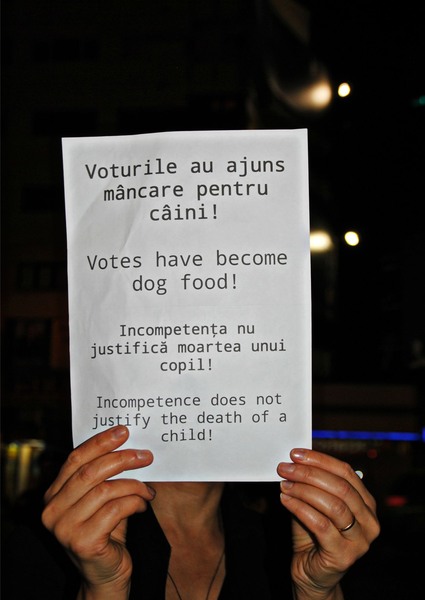 Voturile au ajuns
mâncare pentru
câini!
Votes have become
dog food!
Incompetența nu
justifică moartea unui
copil!
Incompetence does not
justify the death of a
child!